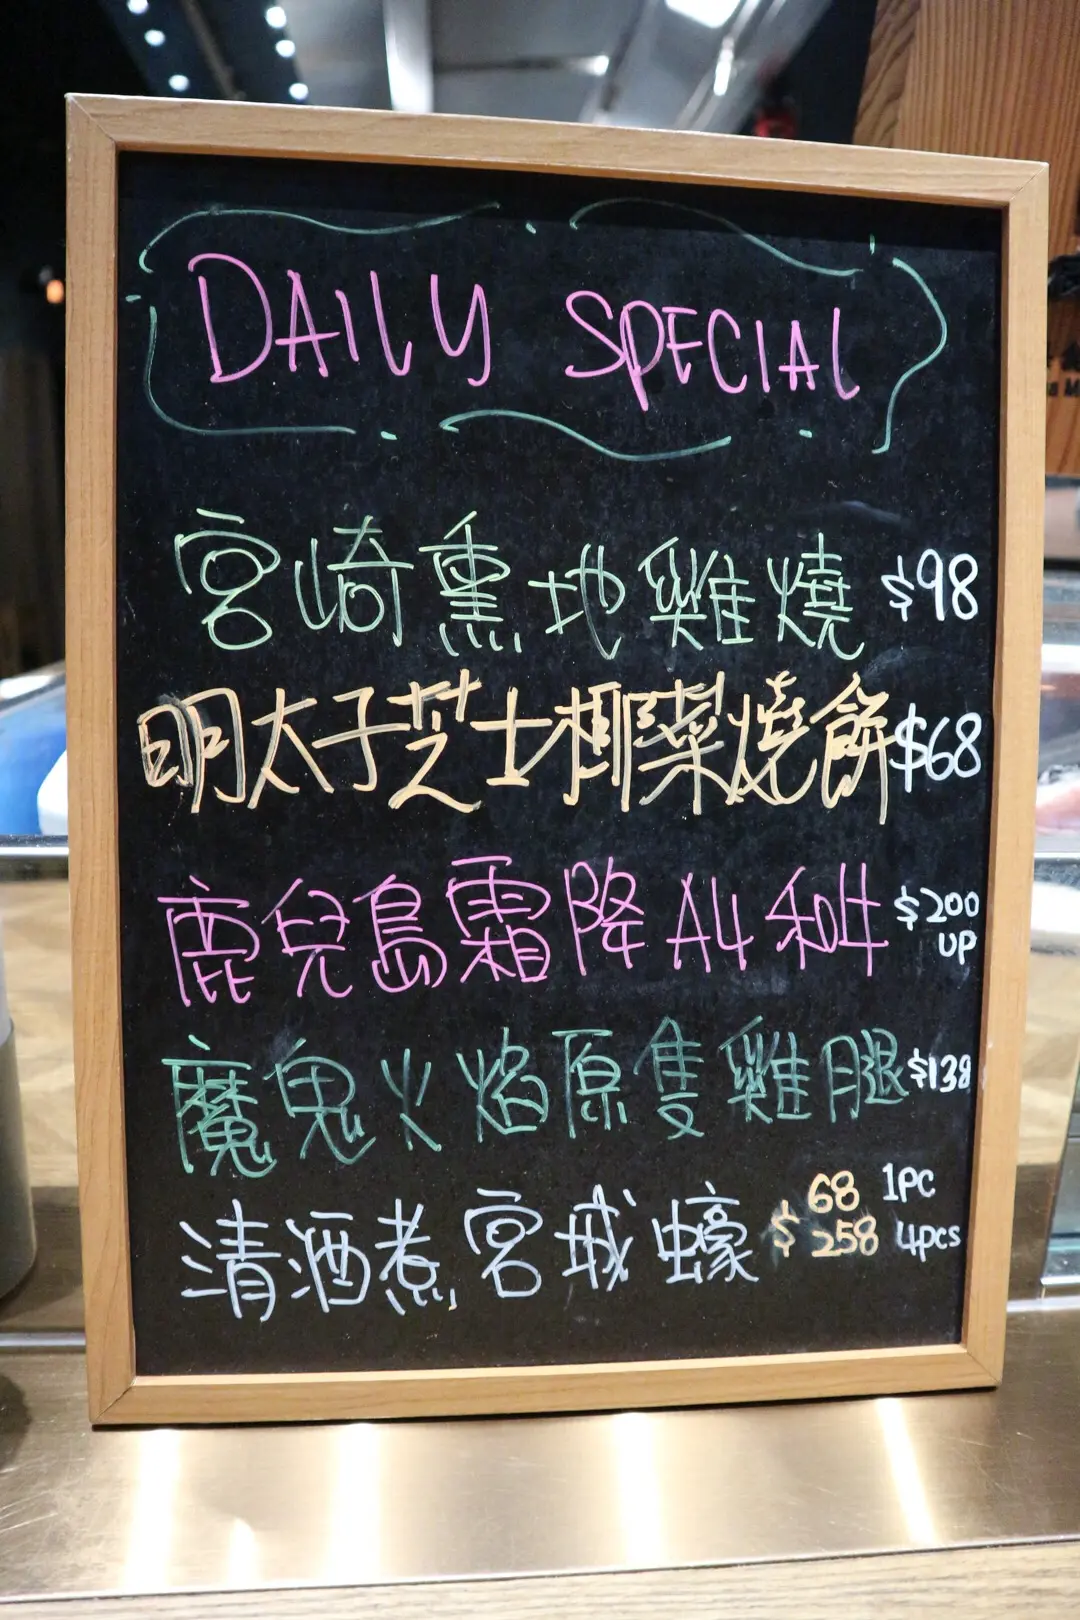 DAILY SPECIAL
宮崎熏地雞燒 $98
明太子芝士椰菜燒餅 $68
鹿兒島霜降A4和牛 $200 UP
魔鬼火焰原隻雞腿 $138
清酒煮宮城蠔 $68 1PC
$258 4pcs